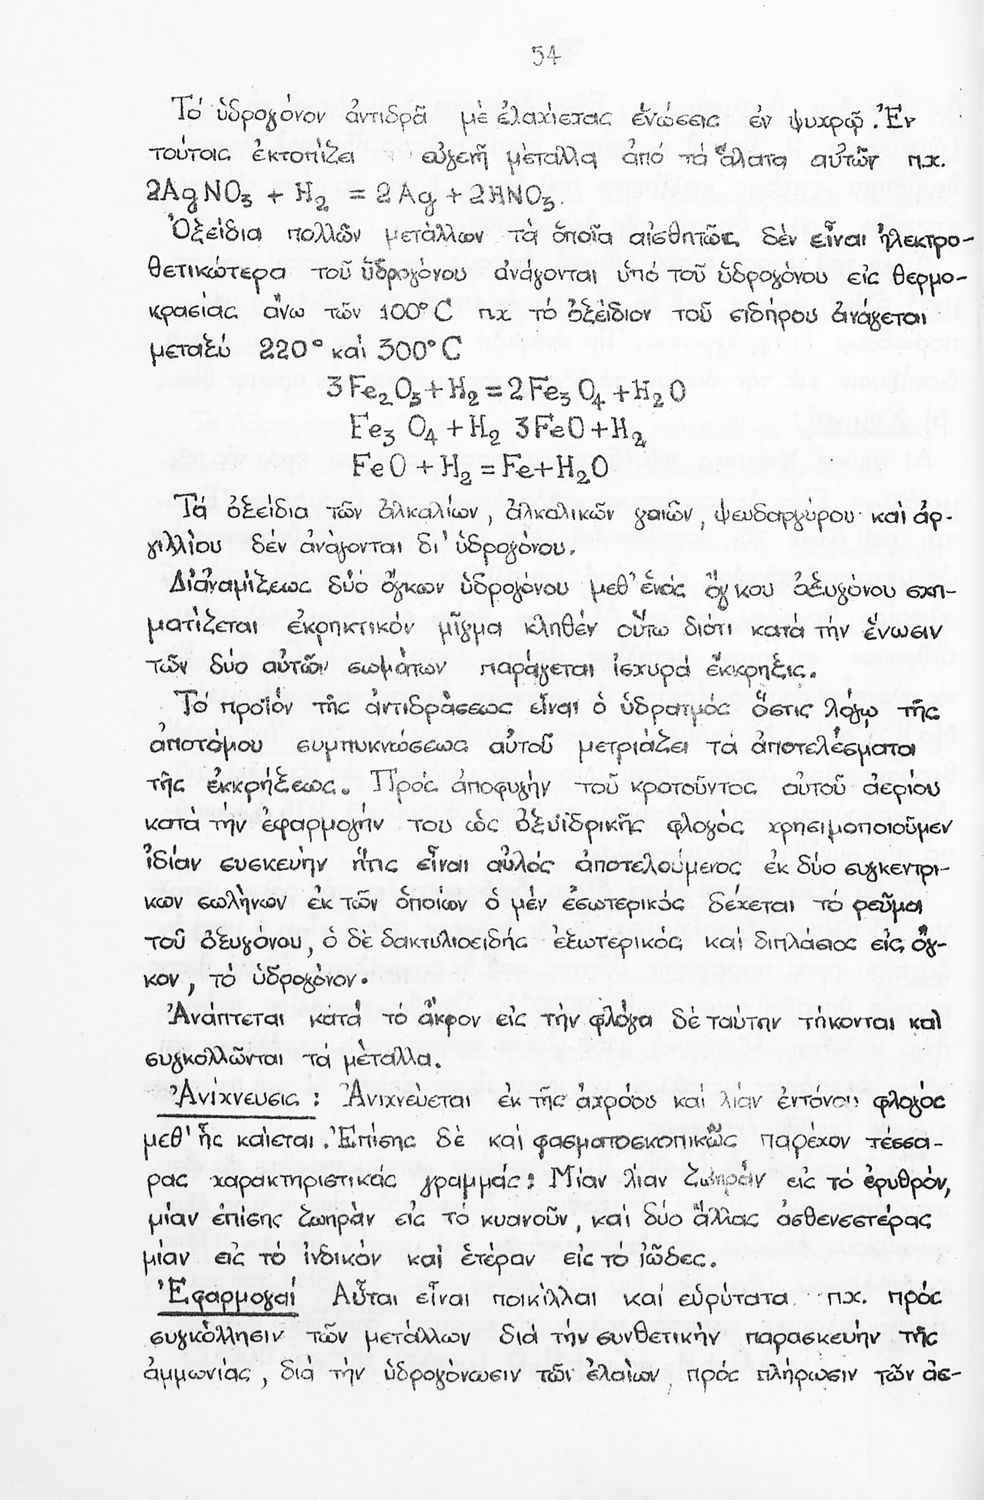 54
Τό ὑδρογόνον ἀντιδρᾶ μὲ ἐλαχίστας ἑνώσεις ἐν ψυχρῷ. Ἐν
τούτοις ἐκτοπίζει εὐγενῆ μέταλλα ἀπό τά ἅλατα αὐτῶν π.χ.
2AgNO₃ + H₂ = 2Ag + 2HNO₃.
Ὀξείδια πολλῶν μετάλλων τά ὁποῖα αἰσθητῶς δέν εἶναι ἠλεκτρο-
θετικώτερα τοῦ ὑδρογόνου ἀνάγονται ὑπό τοῦ ὑδρογόνου εἰς θερμο-
κρασίας ἄνω τῶν 100°C π.χ τό ὀξείδιον τοῦ σιδήρου ἀνάγεται
μεταξύ 220° καί 300°C
3Fe₂O₃ + H₂ = 2Fe₃O₄ + H₂O
Fe₃O₄ + H₂ 3FeO + H₂
FeO + H₂ = Fe + H₂O
Τά ὀξείδια τῶν ἀλκαλίων, ἀλκαλικῶν γαιῶν, ψευδαργύρου καί ἀρ-
γιλλίου δέν ἀνάγονται δι' ὑδρογόνου.
Διἀναμίξεως δύο ὄγκων ὑδρογόνου μεθ' ἑνός ὄγκου ὀξυγόνου σχη-
ματίζεται ἐκρηκτικόν μῖγμα κληθέν οὕτω διότι κατά τήν ἕνωσιν
τῶν δύο αὐτῶν σωμάτων παράγεται ἰσχυρά ἔκκρηξις.
Τό προϊόν τῆς ἀντιδράσεως εἶναι ὁ ὑδρατμός ὅστις λόγῳ τῆς
ἀποτόμου συμπυκνώσεως αὐτοῦ μετριάζει τά ἀποτελέσματα
τῆς ἐκκρήξεως. Πρός ἀποφυγήν τοῦ κροτοῦντος αὐτοῦ ἀερίου
κατά τήν ἐφαρμογήν του ὡς ὀξυϊδρικῆς φλογός χρησιμοποιοῦμεν
ἰδίαν συσκευήν ἥτις εἶναι αὐλός ἀποτελούμενος ἐκ δύο συγκεντρι-
κων σωλήνων ἐκ τῶν ὁποίων ὁ μέν ἐσωτερικός δέχεται τό ρεῦμα
τοῦ ὀξυγόνου, ὁ δὲ δακτυλιοειδής ἐξωτερικός καί διπλάσιος εἰς ὄγ-
κον, τό ὑδρογόνον.
Ἀνάπτεται κατά τό ἄκρον εἰς τήν φλόγα δέ ταύτην τήκονται καί
συγκολλῶνται τά μέταλλα.
Ἀνίχνευσις: Ἀνιχνεύεται ἐκ τῆς ἀχρόου καί λίαν ἐντόνου φλογός
μεθ' ἧς καίεται. Ἐπίσης δέ καί φασματοσκοπικῶς παρέχον τέσσα-
ρας χαρακτηριστικάς γραμμάς: Μίαν λίαν ζωηράν εἰς τό ἐρυθρόν,
μίαν ἐπίσης ζωηράν εἰς τό κυανοῦν, καί δύο ἄλλας ἀσθενεστέρας
μίαν εἰς τό ἰνδικόν καί ἑτέραν εἰς τό ἰῶδες.
Ἐφαρμογαί Αὗται εἶναι ποικίλλαι καί εὐρύταται π.χ. πρός
συγκόλλησιν τῶν μετάλλων διά τήν συνθετικήν παρασκευήν τῆς
ἀμμωνίας, διά τήν ὑδρογόνωσιν τῶν ἐλαίων, πρός πλήρωσιν τῶν ἀε-